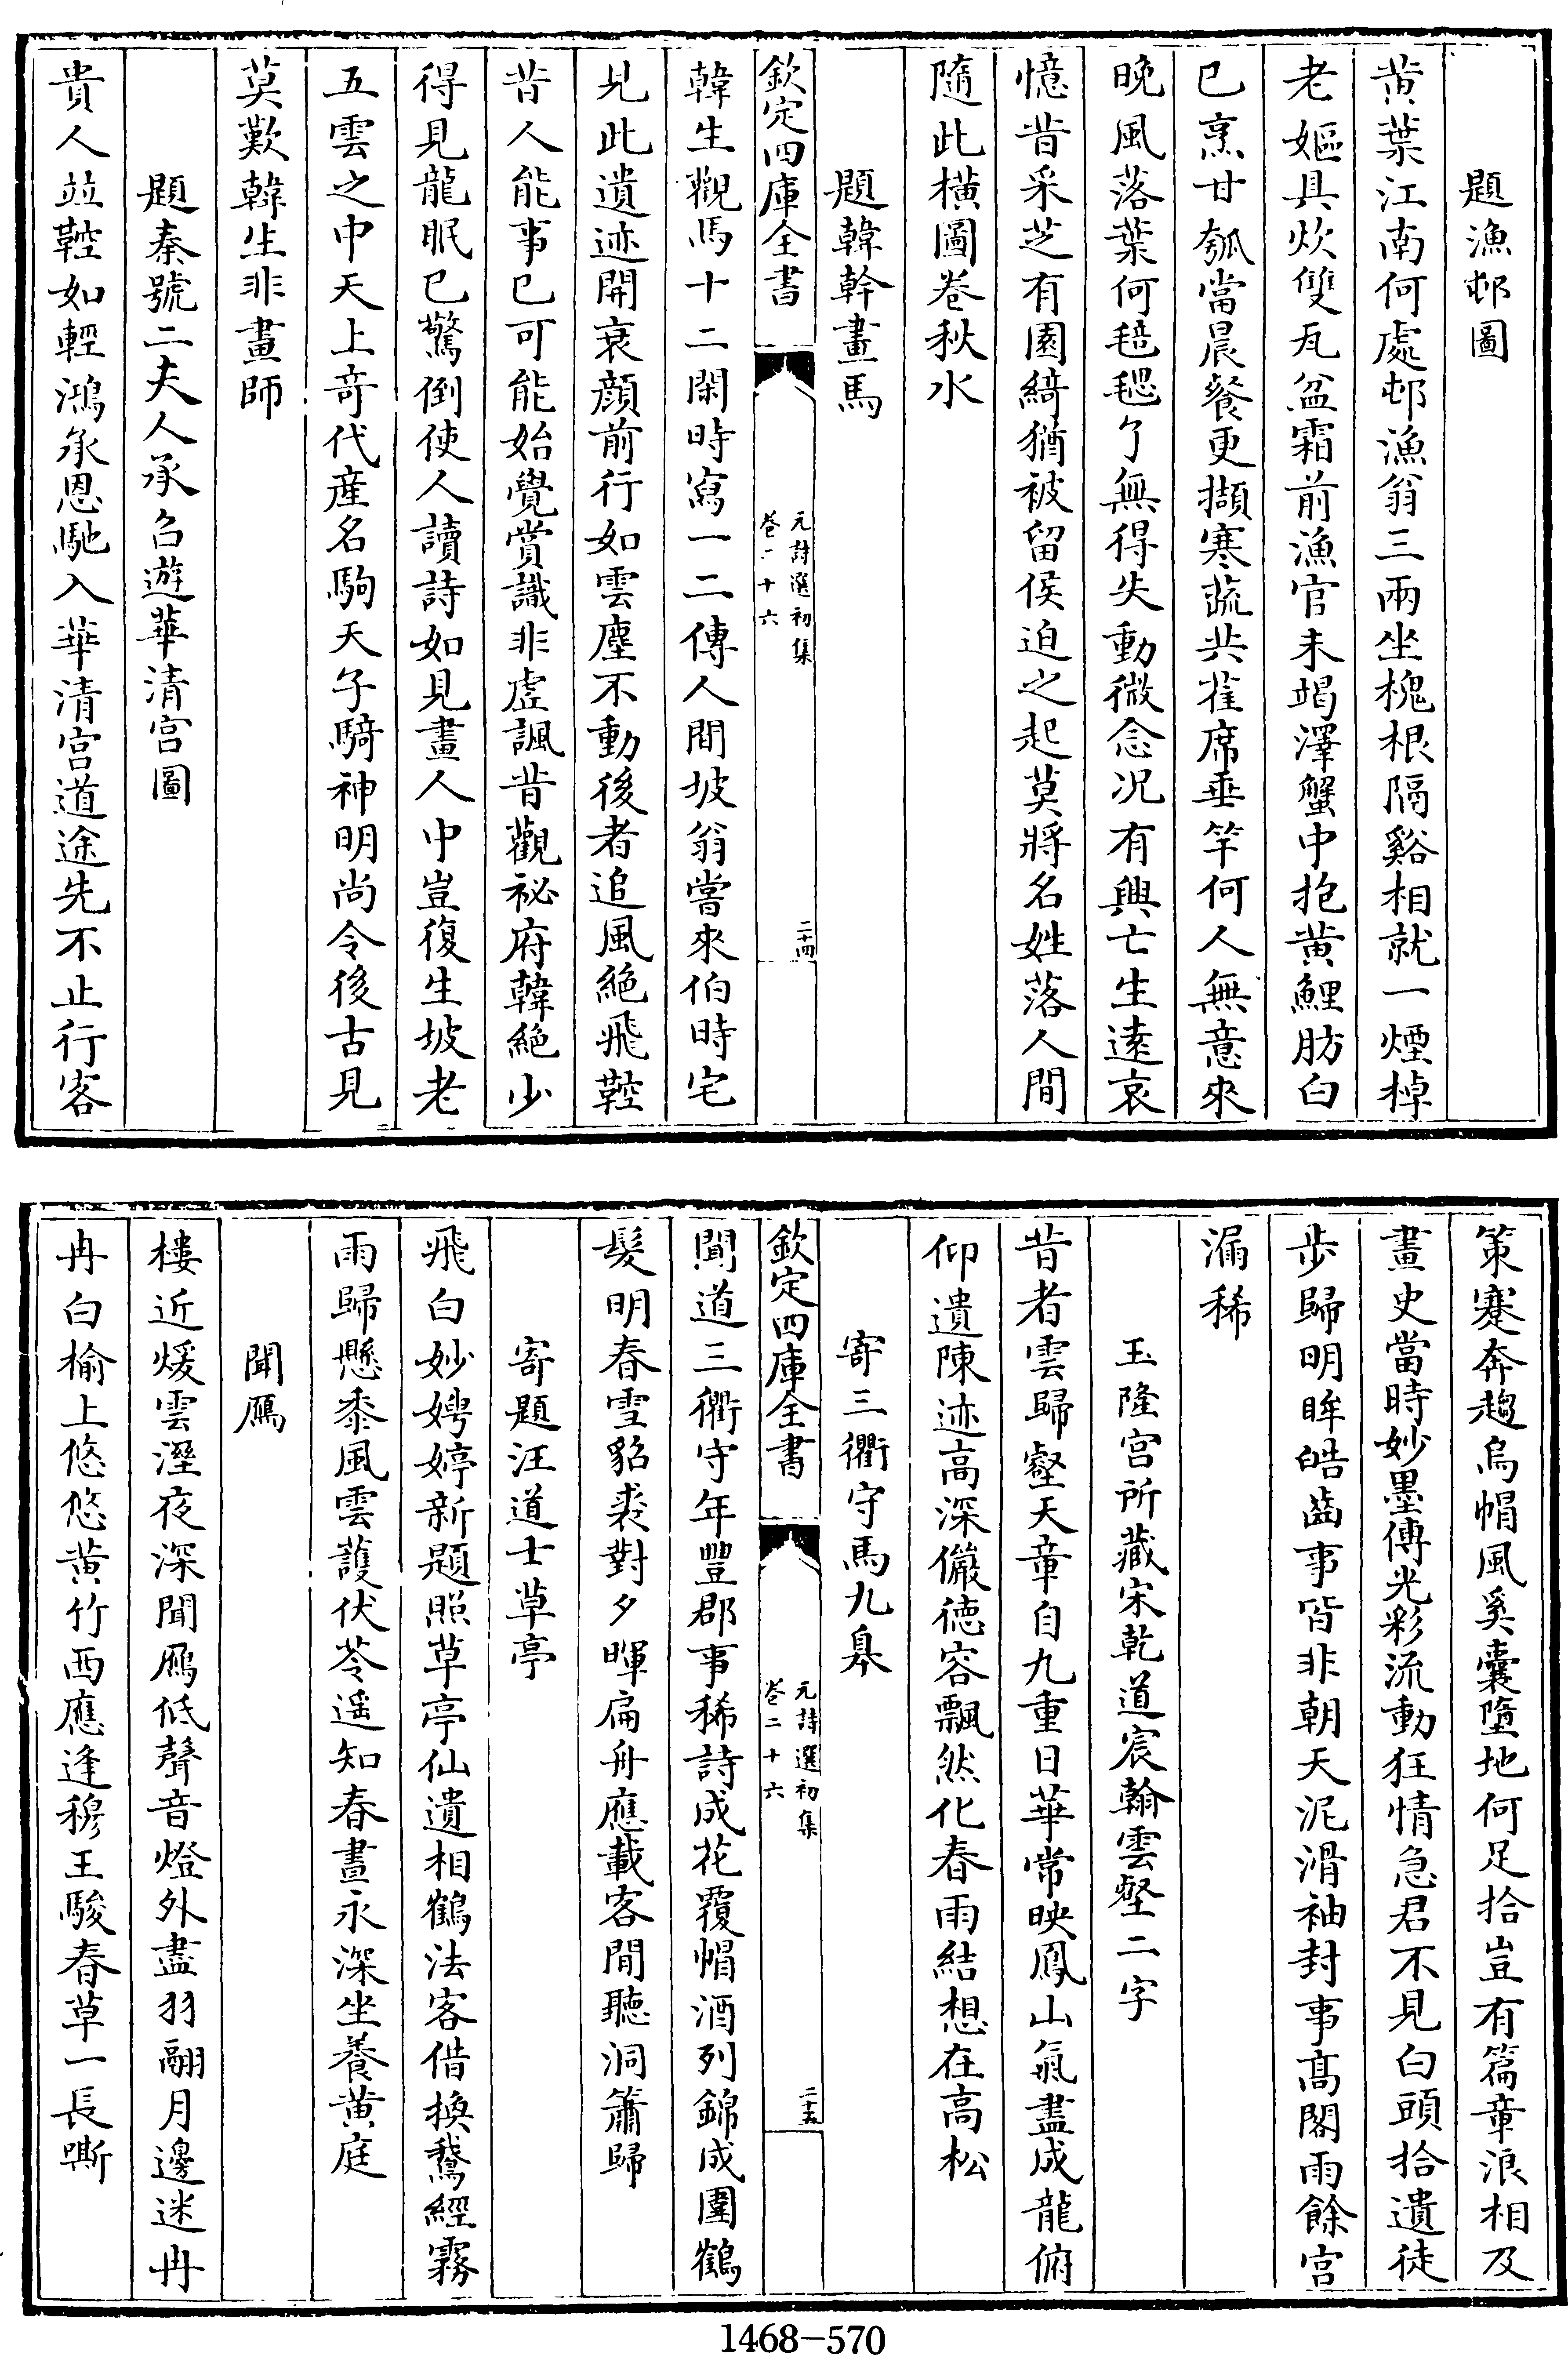 題漁邨圖
黄葉江南何處邨漁翁三兩坐槐根隔谿相就一煙棹
老嫗具炊雙瓦盆霜前漁官未竭澤蟹中抱黄鯉肪白
已烹甘瓠當晨餐更擷寒蔬共萑席垂竿何人無意來
晚風落葉何毰毸了無得失動微念况有興亡生遠哀
憶昔采芝有園綺猶被留侯迫之起莫將名姓落人間
隨此横圖卷秋水
題韓幹畫馬
欽定四庫全書
元詩選初集
卷二十六
二十四
韓生觀馬十二閑時寫一二傳人間坡翁嘗來伯時宅
見此遺迹開衰顔前行如雲塵不動後者追風絶飛鞚
昔人能事已可能始覺賞識非虚諷昔觀祕府韓絶少
得見龍眠已驚倒使人讀詩如見畫人中豈復生坡老
五雲之中天上奇代産名駒天子騎神明尚令後古見
莫歎韓生非畫師
題秦虢二夫人承召遊華清宫圖
貴人並鞚如輕鴻承恩馳入華清宫道途先不止行客
策蹇奔趨烏帽風奚囊墮地何足拾豈有篇章浪相及
畫史當時妙墨傳光彩流動狂情急君不見白頭拾遺徒
步歸明眸皓齒事皆非朝天泥滑袖封事髙閣雨餘宫
漏稀
玉隆宫所藏宋乾道宸翰雲壑二字
昔者雲歸壑天章自九重日華常映鳳山氣盡成龍俯
仰遺陳迹高深儼徳容飄然化春雨結想在高松
寄三衢守馬九臯
欽定四庫全書
元詩選初集
卷二十六
二十五
聞道三衢守年豐郡事稀詩成花覆帽酒列錦成圍鶴
髮明春雪貂裘對夕暉扁舟應載客閒聽洞簫歸
寄題汪道士草亭
飛白妙娉婷新題照草亭仙遺相鶴法客借換鵞經霧
雨歸懸黍風雲護伏苓遥知春晝永深坐養黄庭
聞鴈
樓近煖雲溼夜深聞鴈低聲音燈外盡羽翮月邊迷冉
冉白榆上悠悠黄竹西應逢穆王駿春草一長嘶
1468-570